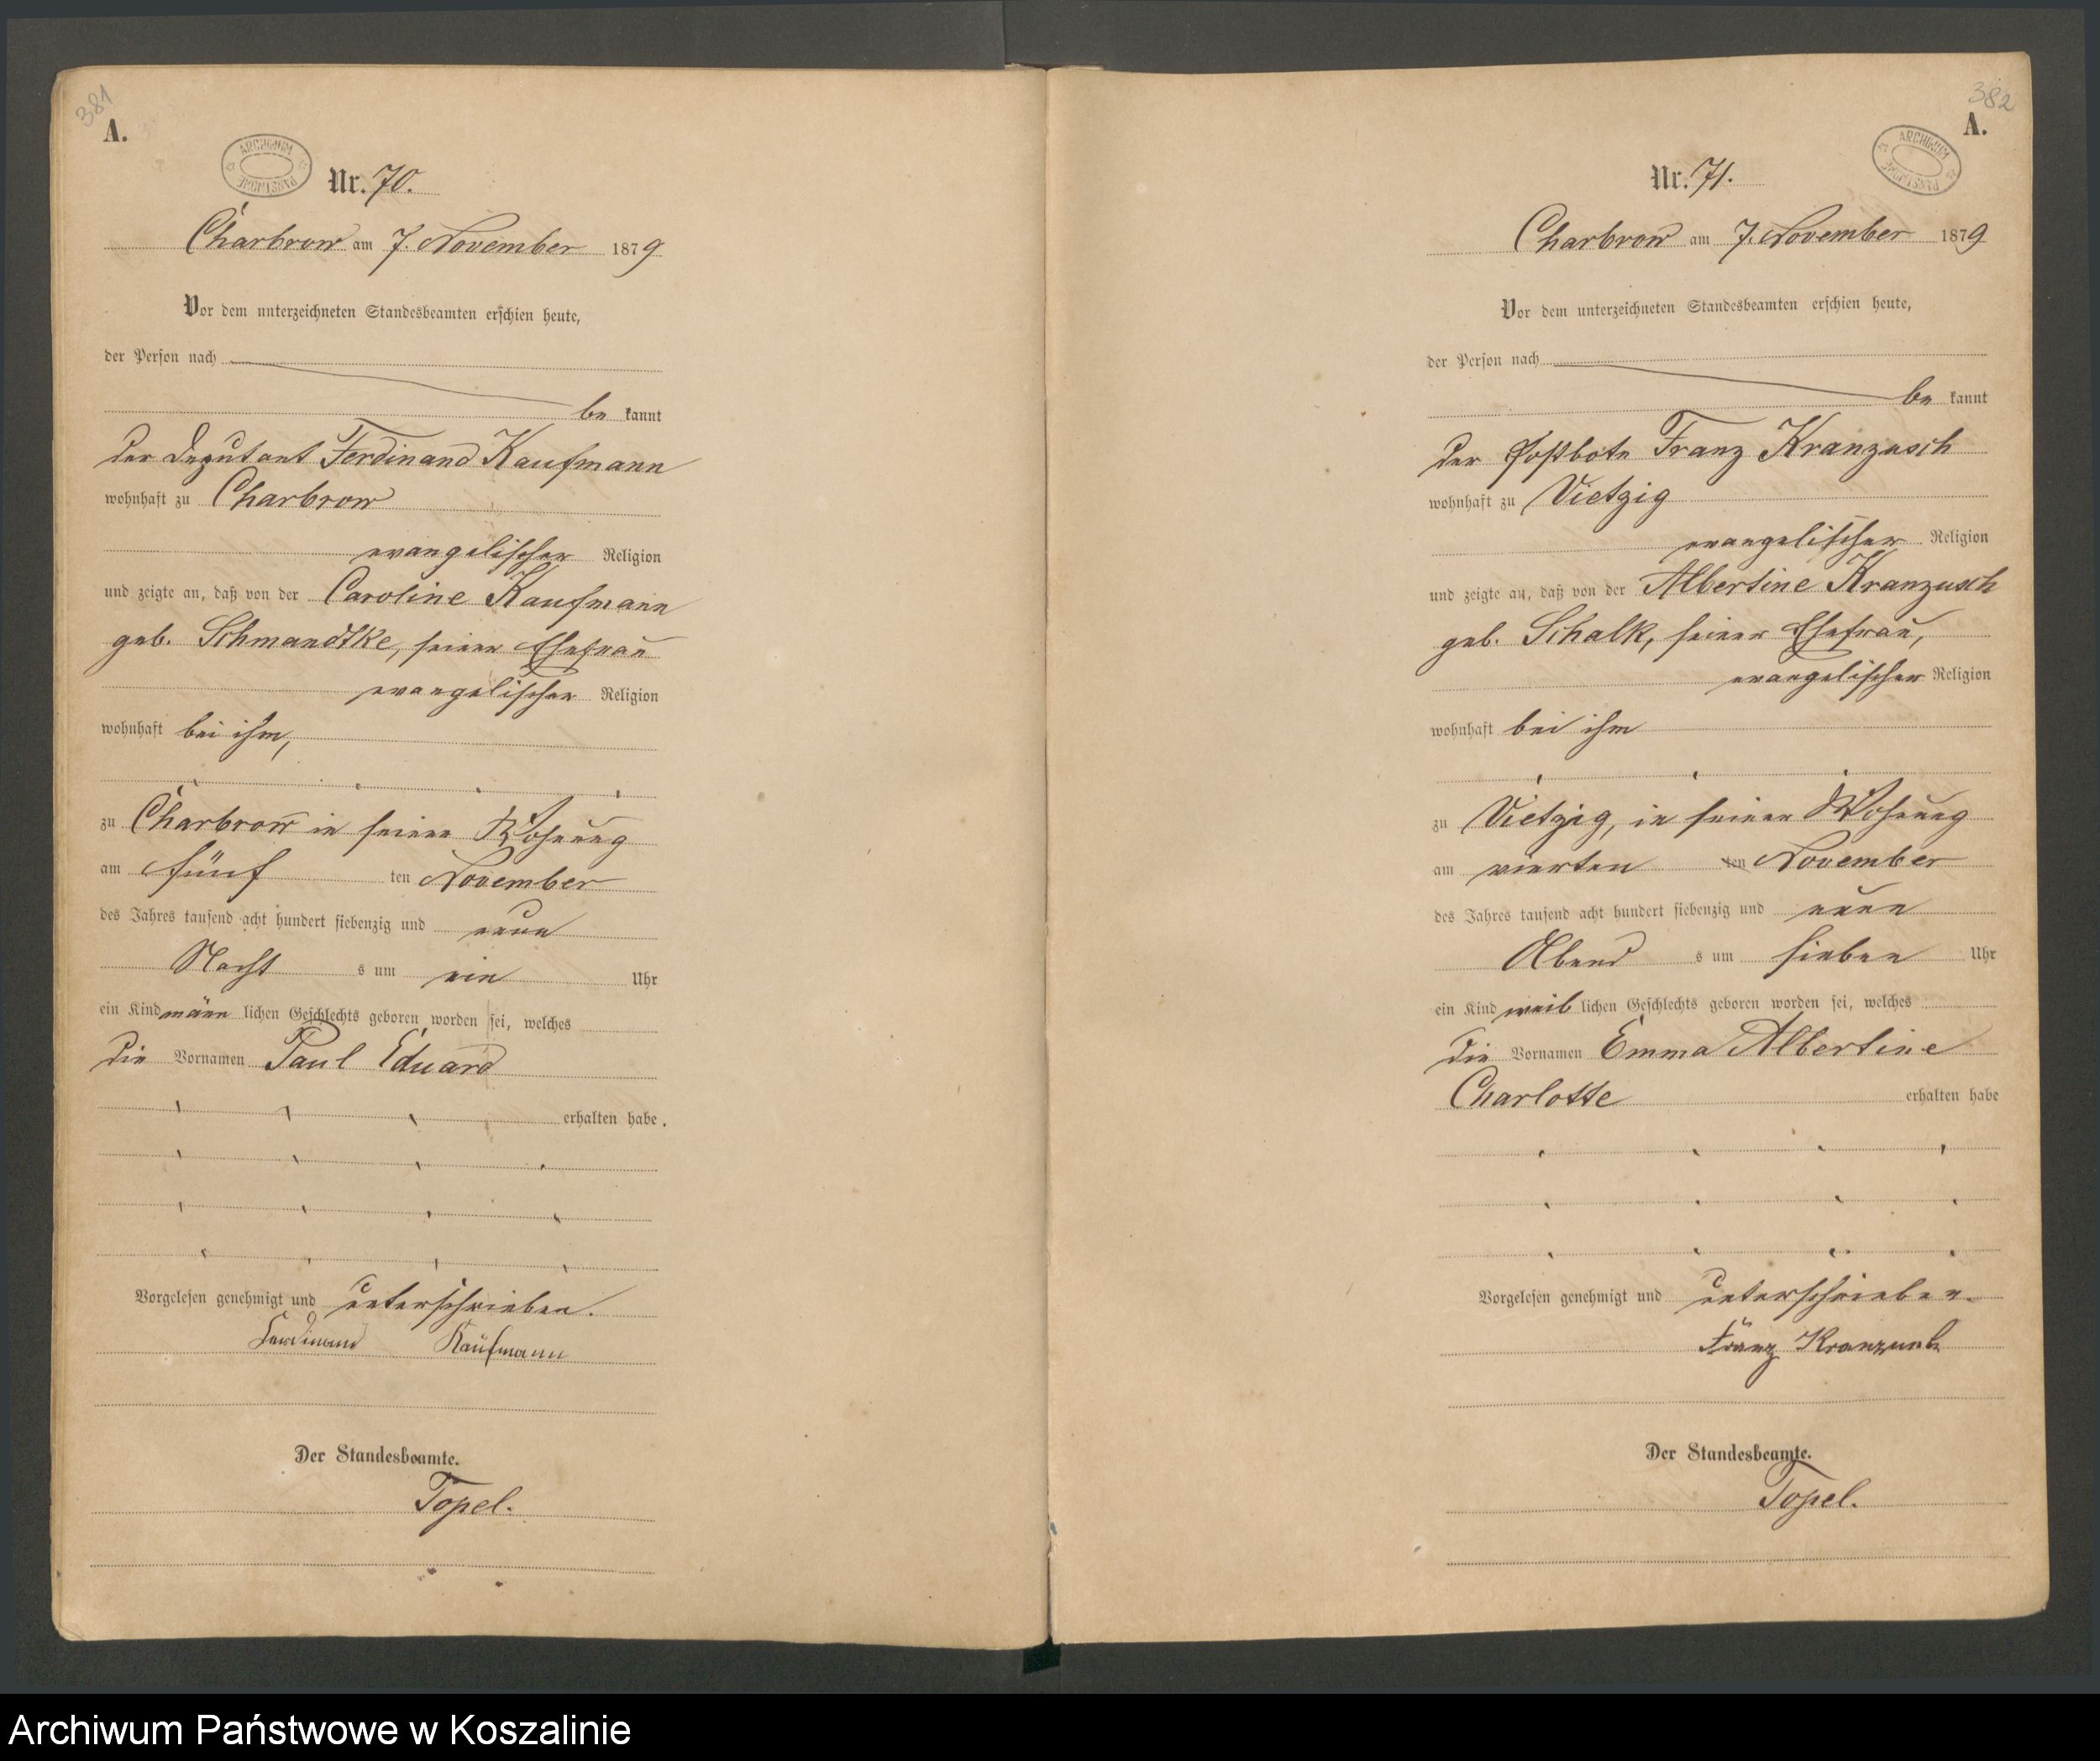 381
A.
ARCHIWUM PAŃSTWOWE
Nr. 70.
Charbrow am 7. November 1879
Vor dem unterzeichneten Standesbeamten erschien heute,
der Person nach
be kannt
der Deputant Ferdinand Kaufmann
wohnhaft zu Charbrow
evangelischer Religion
und zeigte an, daß von der Caroline Kaufmann
geb. Schmandtke, seiner Ehefrau
evangelischer Religion
wohnhaft bei ihm,
zu Charbrow in seiner Wohnung
am fünf ten November
des Jahres tausend acht hundert siebenzig und neun
Nacht s um ein Uhr
ein Kind männ lichen Geschlechts geboren worden sei, welches
die Vornamen Paul Eduard
erhalten habe.
Vorgelesen genehmigt und unterschrieben.
Ferdinand Kaufmann
Der Standesbeamte.
Topel.
382
A.
ARCHIWUM PAŃSTWOWE
Nr. 71.
Charbrow am 7. November 1879
Vor dem unterzeichneten Standesbeamten erschien heute,
der Person nach
be kannt
der Postbote Franz Kranzusch
wohnhaft zu Vietzig
evangelischer Religion
und zeigte an, daß von der Albertine Kranzusch
geb. Schalk, seiner Ehefrau,
evangelischer Religion
wohnhaft bei ihm
zu Vietzig, in seiner Wohnung
am vierten ten November
des Jahres tausend acht hundert siebenzig und neun
Abend s um sieben Uhr
ein Kind weib lichen Geschlechts geboren worden sei, welches
die Vornamen Emma Albertine
Charlotte erhalten habe
Vorgelesen genehmigt und unterschrieben.
Franz
Der Standesbeamte.
Topel.
Archiwum Państwowe w Koszalinie